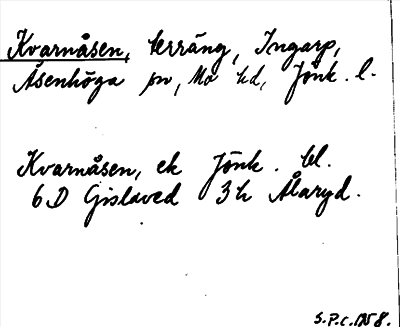 Kvarnåsen, terräng, Ingarp,
Åsenhöga sn, Mo hd, Jönk. l.
Kvarnåsen, ek Jönk. bl.
6 D Gislaved 3h Ålaryd.
S.P.C. 1258.